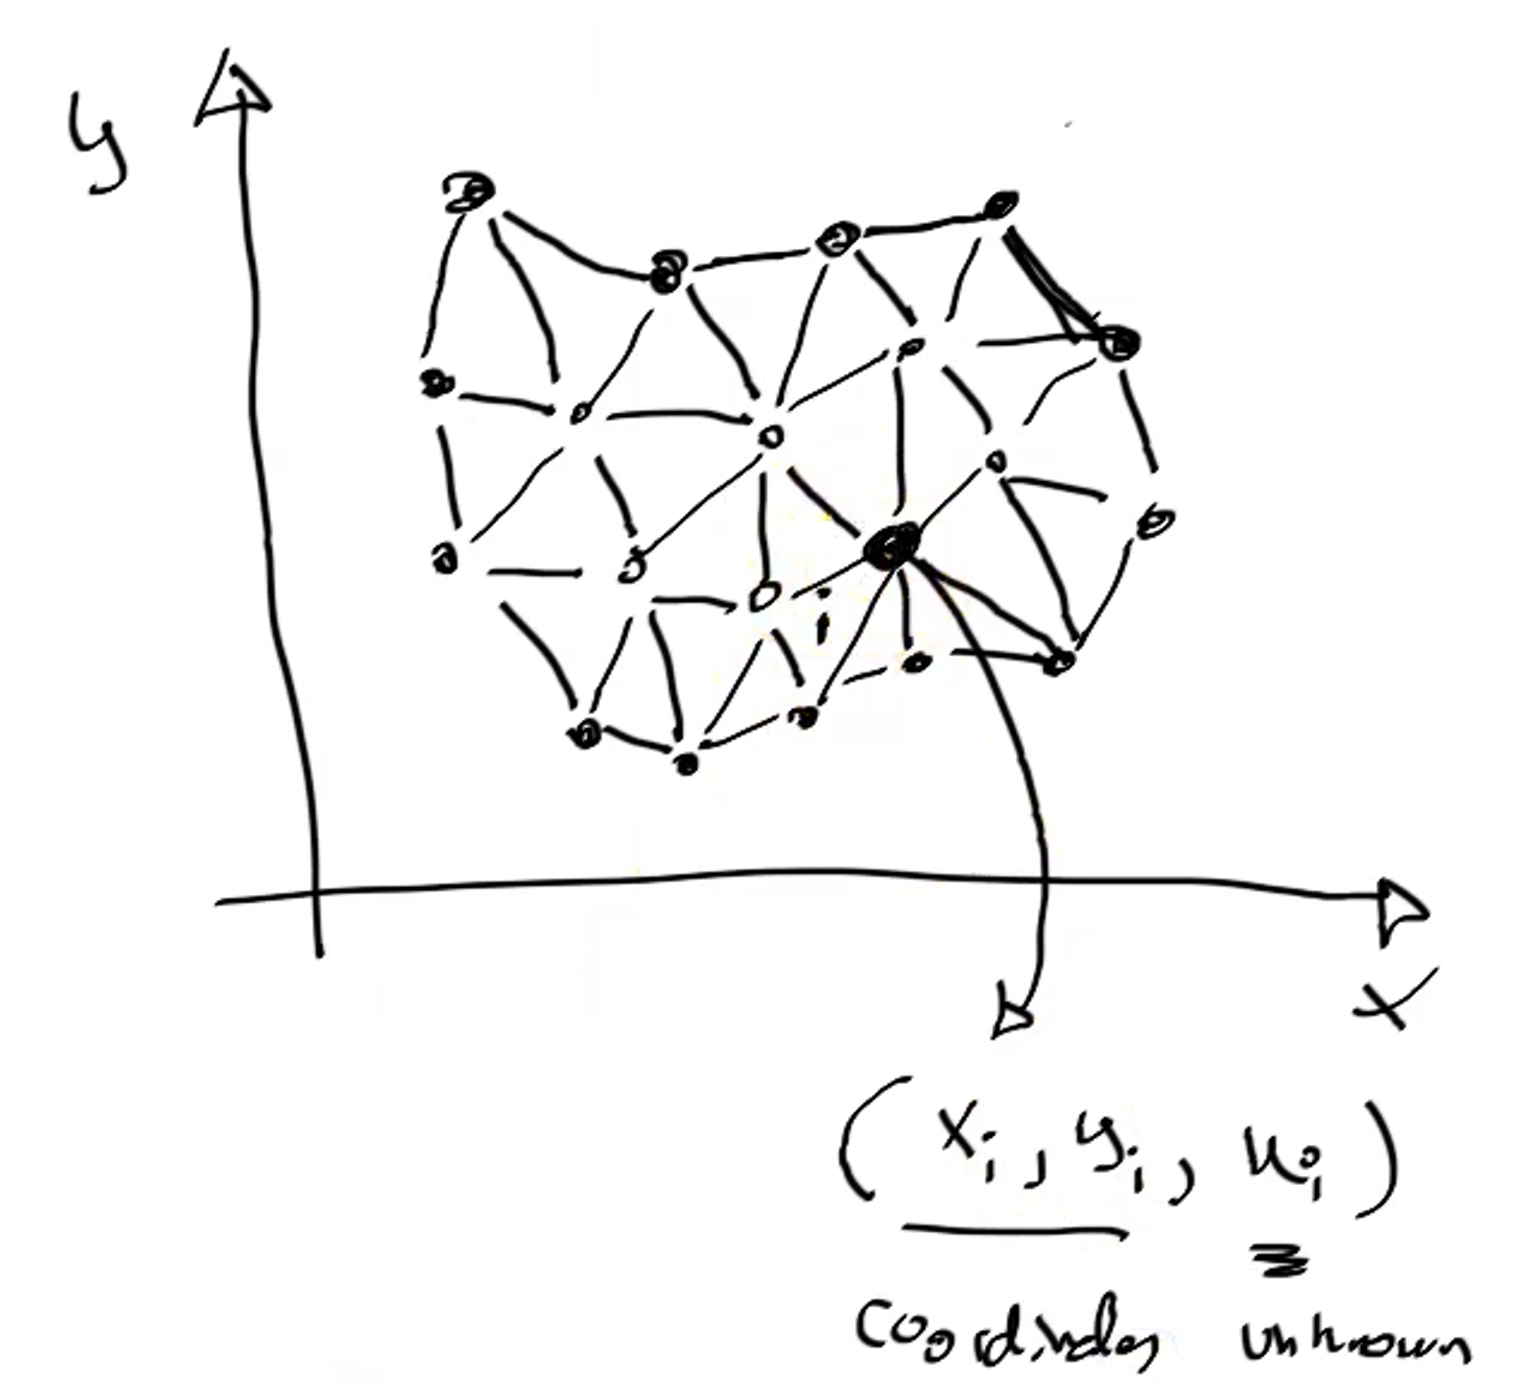 y
i
x
(xi, yi, ui)
coordinates unknown